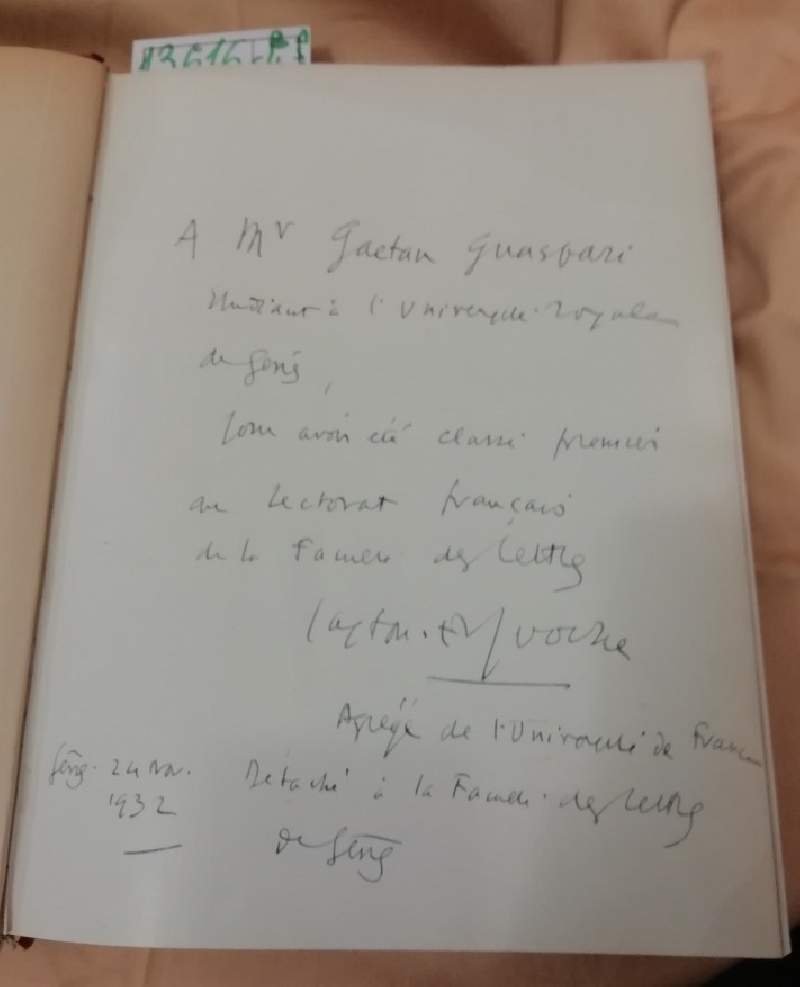 A Mr Gaetan Guaspari
étudiant à l'Université Royale
de Gênes,
pour avoir été classé premier
au Lectorat français
de la Faculté des Lettres
Gaston
Agrégé de l'Université de France
Détaché à la Faculté des Lettres
de Gênes
Gênes. 24 Nov.
1932